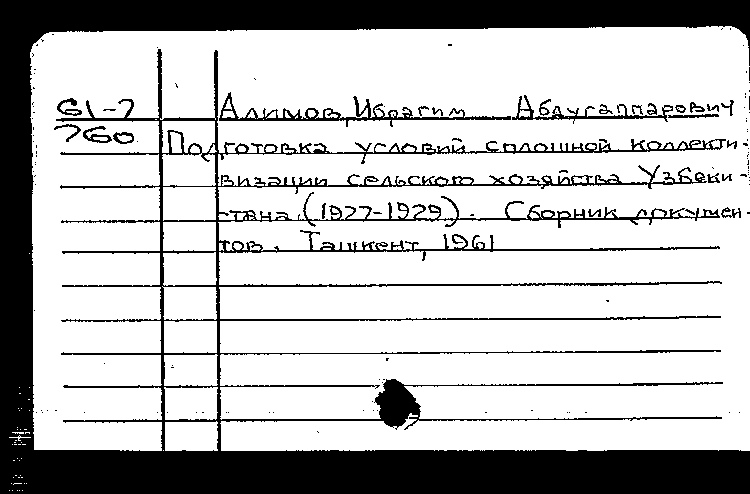 61-7 Алимов, Ибрагим Абдугаппарович
760 Подготовка условий сплошной коллекти-
визации сельского хозяйства Узбеки-
стана (1927-1929). Сборник докумен-
тов. Ташкент, 1961